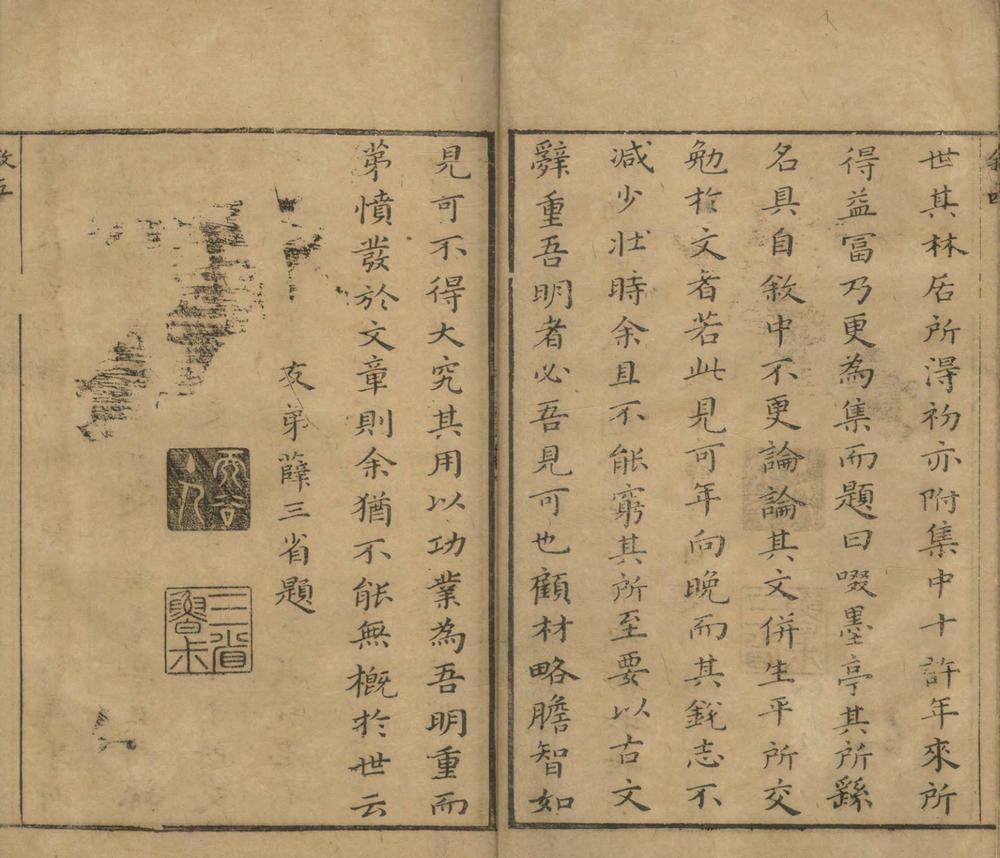 世其林居所淂初亦附集中十許年來所
得益冨乃更為集而題曰啜墨亭其所繇
名具自敘中不更論論其文併生平所交
勉扵文者若此見可年向晚而其銳志不
減少壯時余且不能窮其所至要以古文
辭重吾明者必吾見可也顧材略膽智如
見可不得大究其用以功業為吾明重而
苐憤發於文章則余猶不能無概扵世云
友弟薛三省題
三省魯未
敘五